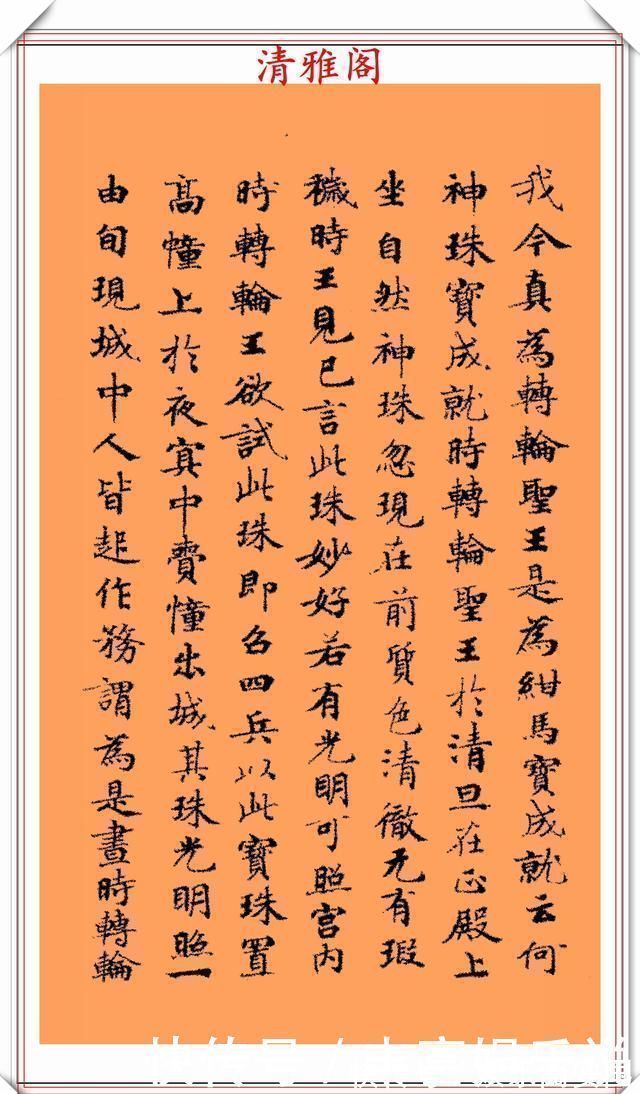 清雅阁
我今真為轉輪聖王是為紺馬寶成就云何
神珠寶成就時轉輪聖王於清旦在正殿上
坐自然神珠忽現在前質色清徹无有瑕
穢時王見已言此珠妙好若有光明可照宮内
時轉輪王欲試此珠即召四兵以此寶珠置
高幢上於夜寘中賷憧出城其珠光明照一
由旬現城中人皆起作務謂為是晝時轉輪